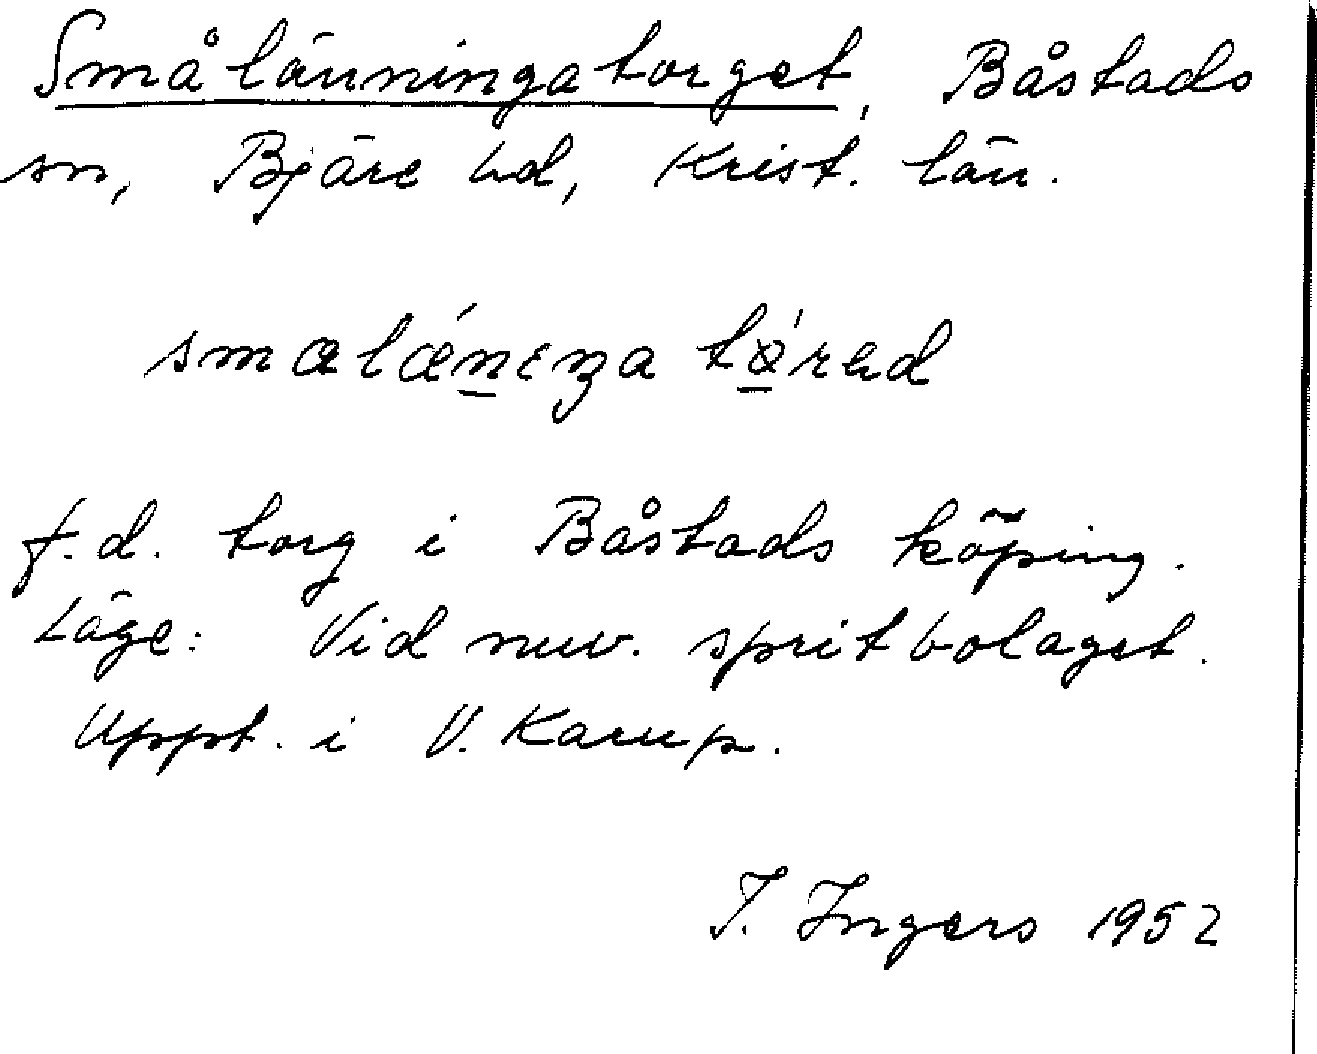 Smålänningatorget, Båstads
sn, Bjäre hd, Krist. län.
smalǽnɛŋa tǿrad
f.d. torg i Båstads köping.
Läge: Vid nuv. spritbolaget.
Uppt. i V. Karup.
I. Ingers 1952